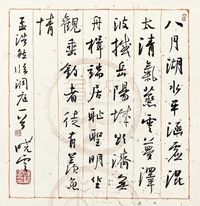 八月湖水平涵虚混
太清氣蒸雲夢澤
波撼岳陽城欲濟無
舟楫端居恥聖明坐
觀垂釣者徒有羨魚
情
孟浩然臨洞庭一首
曉雲